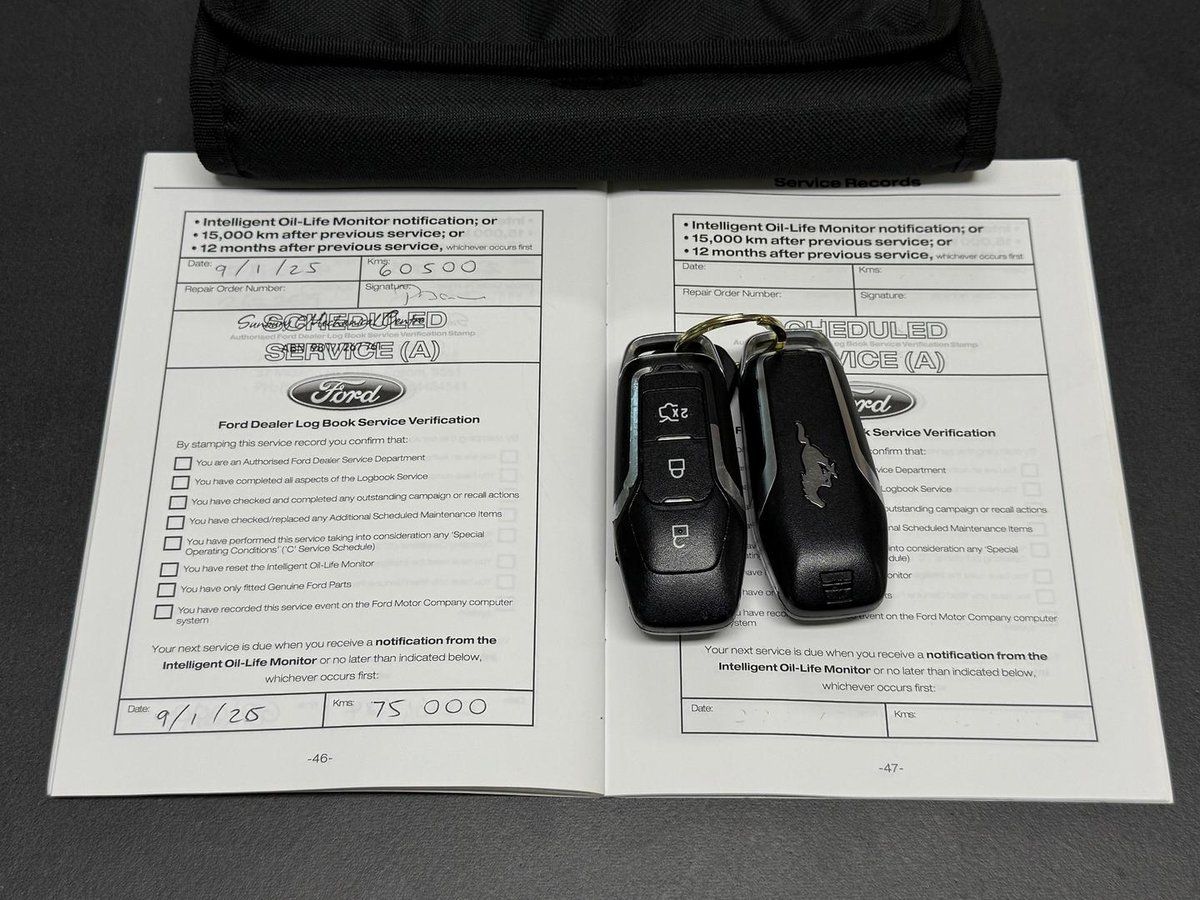 • Intelligent Oil-Life Monitor notification; or
• 15,000 km after previous service; or
• 12 months after previous service, whichever occurs first
Date: 9/1/25 Kms: 60500
Repair Order Number: Signature:
SCHEDULED
Authorised Ford Dealer Log Book Service Verification Stamp
SERVICE (A)
Ford
Ford Dealer Log Book Service Verification
By stamping this service record you confirm that:
You are an Authorised Ford Dealer Service Department
You have completed all aspects of the Logbook Service
You have checked and completed any outstanding campaign or recall actions
You have checked/replaced any Additional Scheduled Maintenance Items
You have performed this service taking into consideration any 'Special
Operating Conditions' ('C' Service Schedule)
You have reset the Intelligent Oil-Life Monitor
You have only fitted Genuine Ford Parts
You have recorded this service event on the Ford Motor Company computer
system
Your next service is due when you receive a notification from the
Intelligent Oil-Life Monitor or no later than indicated below,
whichever occurs first:
Date: 9/1/26 Kms: 75 000
-46-
Service Records
• Intelligent Oil-Life Monitor notification; or
• 15,000 km after previous service; or
• 12 months after previous service, whichever occurs first
Date: Kms:
Repair Order Number: Signature:
CHEDULED
Book Service Verification Stamp
VICE (A)
rd
k Service Verification
onfirm that:
vice Department
Logbook Service
outstanding campaign or recall actions
nal Scheduled Maintenance Items
into consideration any 'Special
dule)
onitor
ks
You have reco event on the Ford Motor Company computer
system
Your next service is due when you receive a notification from the
Intelligent Oil-Life Monitor or no later than indicated below,
whichever occurs first:
Date: Kms:
-47-
2x